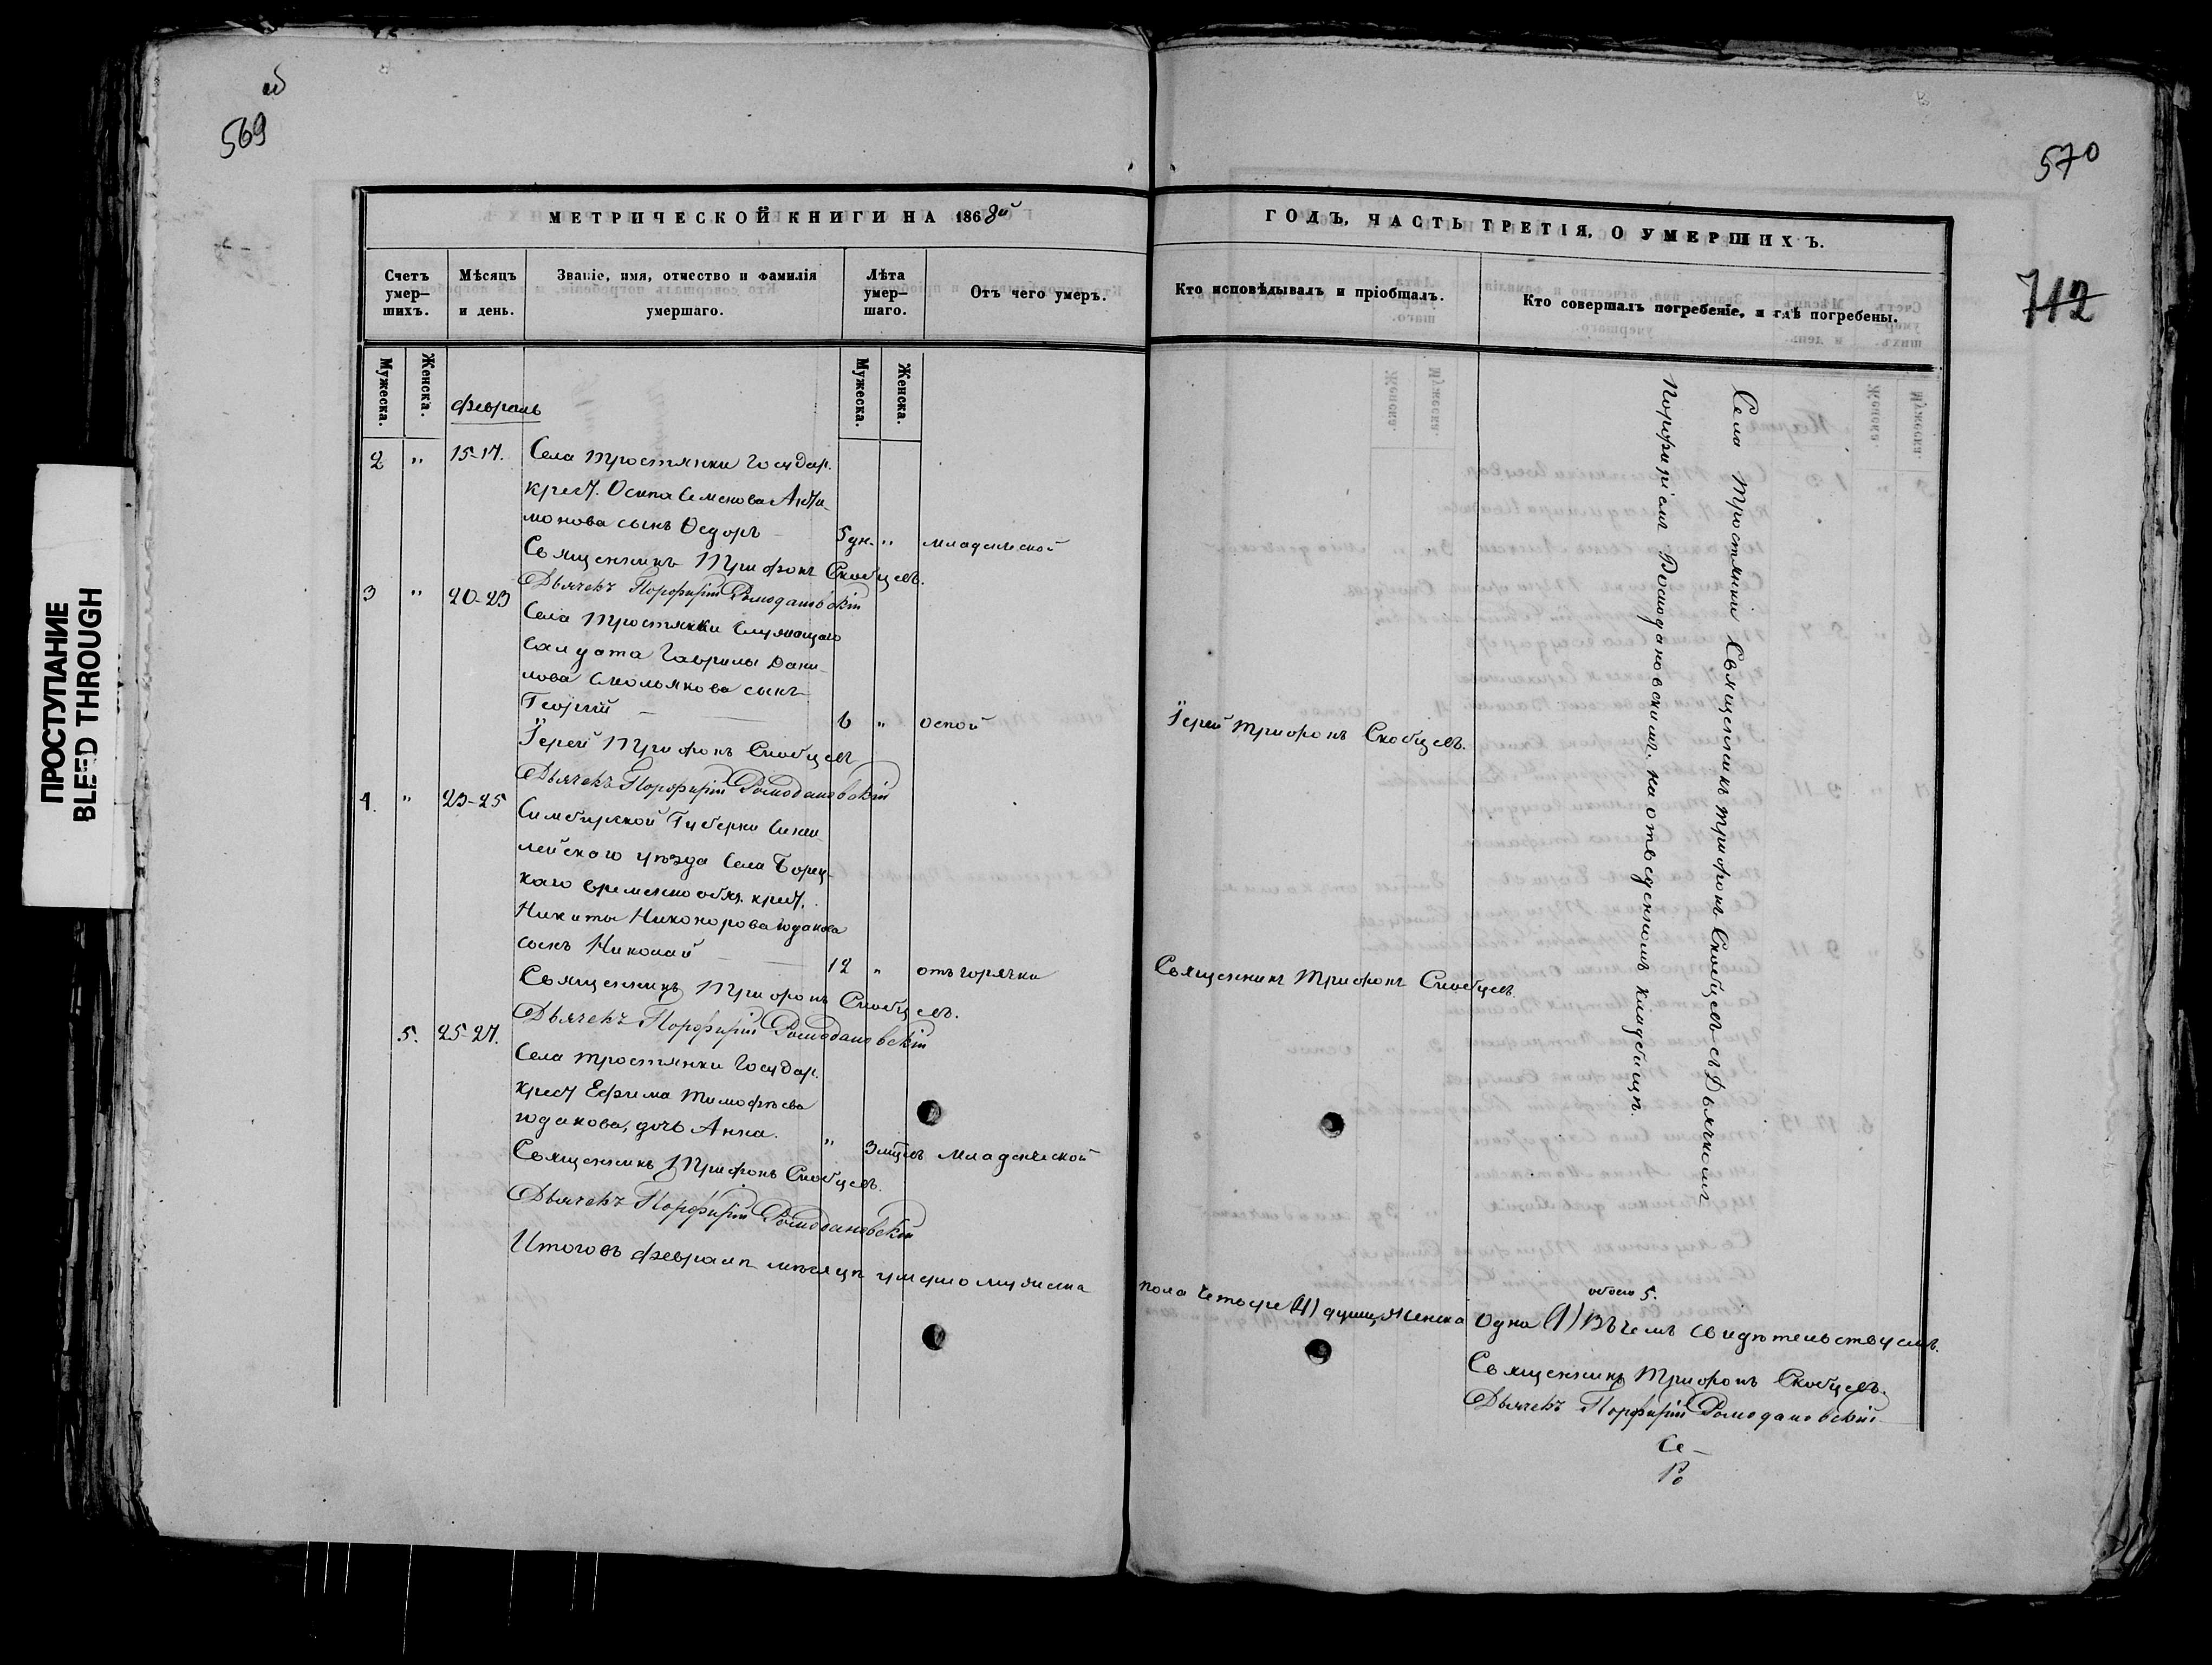 об
569
МЕТРИЧЕСКОЙ КНИГИ НА 1868й
Счетъ умер– шихъ.
Мѣсяцъ и день.
Званіе, имя, отчество и фамилія умершаго.
Лѣта умер– шаго.
Отъ чего умеръ.
Мужеска.
Женска.
Мужеска.
Женска.
Февраль
2 " 15-17. Села Тростянки Государ.
крест. Осипа Семенова Анти-
монова сынъ Ѳедоръ 5 дн. " младенческой
Священникъ Трифонъ Скобцевъ.
Дьячекъ Порфирій Ромодановскій
3 " 20-23 Села Тростянки служащаго
Салдата Гаврилы Дани-
лова Смольякова сынъ
Георгій 6 " оспой
Іерей Трифонъ Скобцевъ
Дьячекъ Порфирій Ромодановскій
4. " 23-25 Симбирской Губерни Сенги-
лейскаго уѣзда Села Борец-
каго временно обяз. крест.
Никиты Никонорова Юданова
сынъ Николай 12 " отъ горячки
Священникъ Трифонъ Скобцевъ.
Дьячекъ Порфирій Ромодановскій
5. 25-27. Села Тростянки Государ.
крест Ефима Тимофѣева
Юдакова, дочь Анна. " 3 мѣсц. младенческой
Священникъ Трифонъ Скобцевъ.
Дьячекъ Порфирій Ромодановскій
Итого въ Февралѣ мѣсяцѣ умерло мужеска
570
712
ГОДЪ, ЧАСТЬ ТРЕТІЯ, О УМЕРШИХЪ.
Кто исповѣдывалъ и пріобщалъ.
Кто совершалъ погребеніе, и гдѣ погребены.
Іерей Трифонъ Скобцевъ.
Священникъ Трифонъ Скобцевъ.
Села Тростянки Священникъ Трифонъ Скобцевъ съ Дьячкомъ
Порфиріемъ Ромодановскимъ. на отведенномъ кладбищѣ.
пола четыре (4) душъ Женска одна (1) Въ чемъ свидѣтельствуемъ.
обоего 5.
Священникъ Трифонъ Скобцевъ.
Дьячекъ Порфирій Ромодановскій
Се–
Ро
ПРОСТУПАНИЕ
BLEED THROUGH